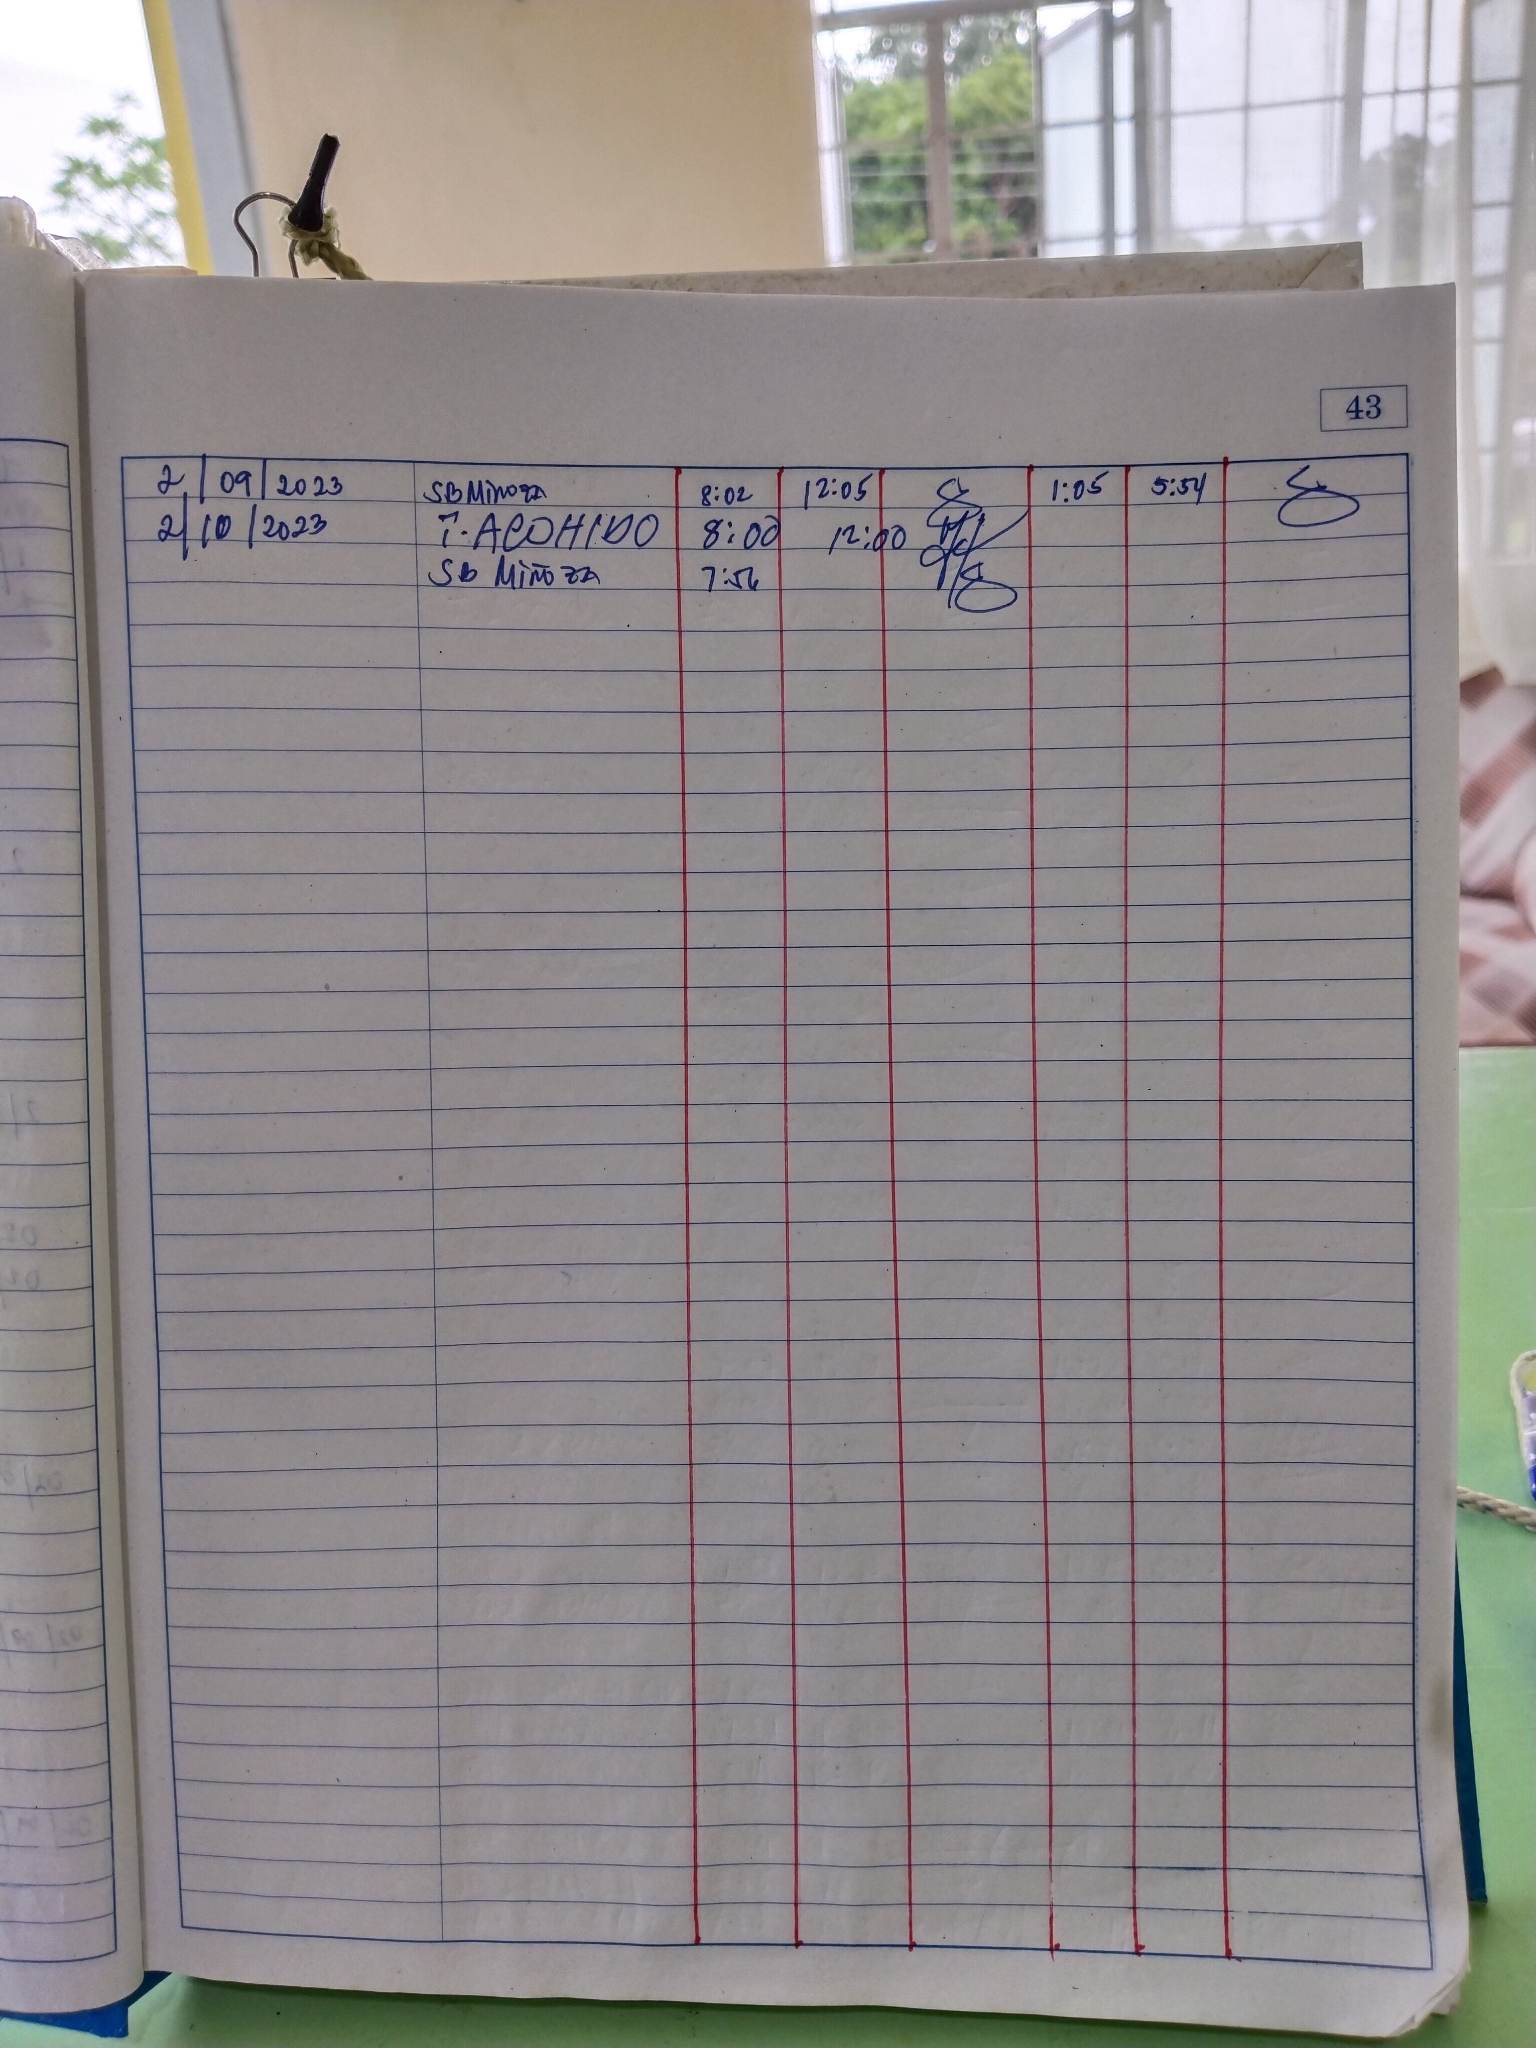 43
2/09/2023 SB Miñoza 8:02 12:05 1:05 5:54
2/10/2023 T. ACOHIDO 8:00 12:00
SB Miñoza 7:56